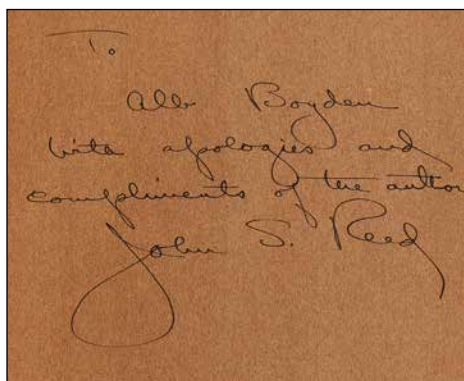 To
Allen Boyden
with apologies and
compliments of the author
John S. Reed